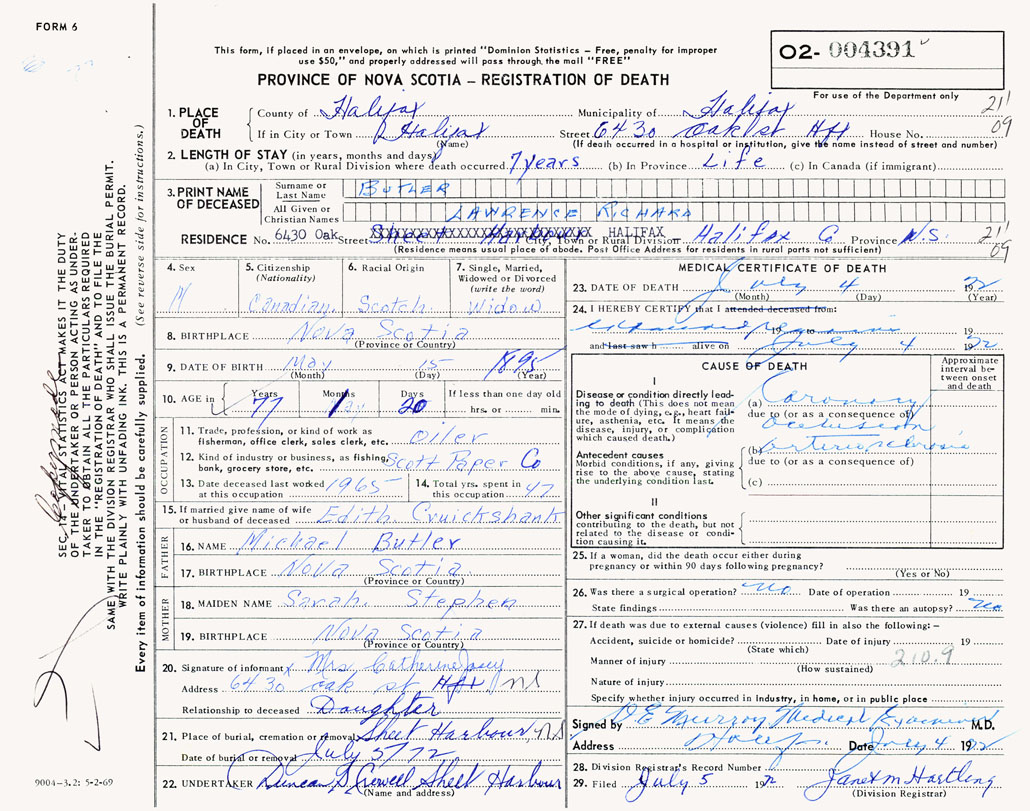 FORM 6
This form, if placed in an envelope, on which is printed "Dominion Statistics – Free, penalty for improper
use $50," and properly addressed will pass through the mail "FREE"
PROVINCE OF NOVA SCOTIA – REGISTRATION OF DEATH
O2- 004391
For use of the Department only
211
09
1. PLACE OF DEATH
County of Halifax Municipality of Halifax
If in City or Town Halifax Street 6430 Oak St Hfx House No.
(Name) (If death occurred in a hospital or institution, give the name instead of street and number)
2. LENGTH OF STAY (in years, months and days)
(a) In City, Town or Rural Division where death occurred 7 years (b) In Province Life (c) In Canada (if immigrant)
3. PRINT NAME OF DECEASED
Surname or Last Name BUTLER
All Given or Christian Names LAWRENCE RICHARD
RESIDENCE No. 6430 Oak Street XXXXXXXXXXXXXXXXXXXXXXXXX HALIFAX
City, Town or Rural Division Halifax Co Province N.S.
211
09
(Residence means usual place of abode. Post Office Address for residents in rural parts not sufficient)
4. Sex
M
5. Citizenship
(Nationality)
Canadian
6. Racial Origin
Scotch
7. Single, Married,
Widowed or Divorced
(write the word)
Widow
8. BIRTHPLACE Nova Scotia
(Province or Country)
9. DATE OF BIRTH May 15 1895
(Month) (Day) (Year)
10. AGE in Years 77 Months 1 Days 20 If less than one day old
hrs. or min.
OCCUPATION
11. Trade, profession, or kind of work as
fisherman, office clerk, sales clerk, etc. Oiler
12. Kind of industry or business, as fishing,
bank, grocery store, etc. Scott Paper Co
13. Date deceased last worked
at this occupation 1965
14. Total yrs. spent in
this occupation 47
15. If married give name of wife
or husband of deceased Edith Cruickshank
FATHER
16. NAME Michael Butler
17. BIRTHPLACE Nova Scotia
(Province or Country)
MOTHER
18. MAIDEN NAME Sarah Stephen
19. BIRTHPLACE Nova Scotia
(Province or Country)
20. Signature of informant Mrs Catherine
Address 6430 Oak St Hfx NS
Relationship to deceased Daughter
21. Place of burial, cremation or removal Sheet Harbour, NS
Date of burial or removal July 5/72
22. UNDERTAKER Duncan S Crowell Sheet Harbour
(Name and address)
MEDICAL CERTIFICATE OF DEATH
23. DATE OF DEATH July 4 1972
(Month) (Day) (Year)
24. I HEREBY CERTIFY that I attended deceased from:
19 to 19
and last saw h alive on July 4 1972
CAUSE OF DEATH
Approximate
interval be-
tween onset
and death
I
Disease or condition directly lead-
ing to death (This does not mean
the mode of dying, e.g., heart fail-
ure, asthenia, etc. It means the
disease, injury, or complication
which caused death.)
(a) Coronary
due to (or as a consequence of)
occlusion
Antecedent causes
Morbid conditions, if any, giving
rise to the above cause, stating
the underlying condition last.
(b) arteriosclerosis
due to (or as a consequence of)
(c)
II
Other significant conditions
contributing to the death, but not
related to the disease or condi-
tion causing it.
25. If a woman, did the death occur either during
pregnancy or within 90 days following pregnancy?
(Yes or No)
26. Was there a surgical operation? No Date of operation 19
State findings Was there an autopsy? No
27. If death was due to external causes (violence) fill in also the following: –
Accident, suicide or homicide? Date of injury 19
(State which)
Manner of injury 210.9
(How sustained)
Nature of injury
Specify whether injury occurred in industry, in home, or in public place
Signed by Murray Medical Examiner M.D.
Address Date July 4 1972
28. Division Registrar's Record Number
29. Filed July 5 1972 Janet M Hartling
(Division Registrar)
SEC. 14 – VITAL STATISTICS ACT MAKES IT THE DUTY
OF THE UNDERTAKER OR PERSON ACTING AS UNDER-
TAKER TO OBTAIN ALL THE PARTICULARS REQUIRED
IN THE "REGISTRATION OF DEATH" AND TO FILE THE
SAME WITH THE DIVISION REGISTRAR WHO SHALL ISSUE THE BURIAL PERMIT.
WRITE PLAINLY WITH UNFADING INK. THIS IS A PERMANENT RECORD.
Every item of information should be carefully supplied. (See reverse side for instructions.)
9004-3.2: 5-2-69